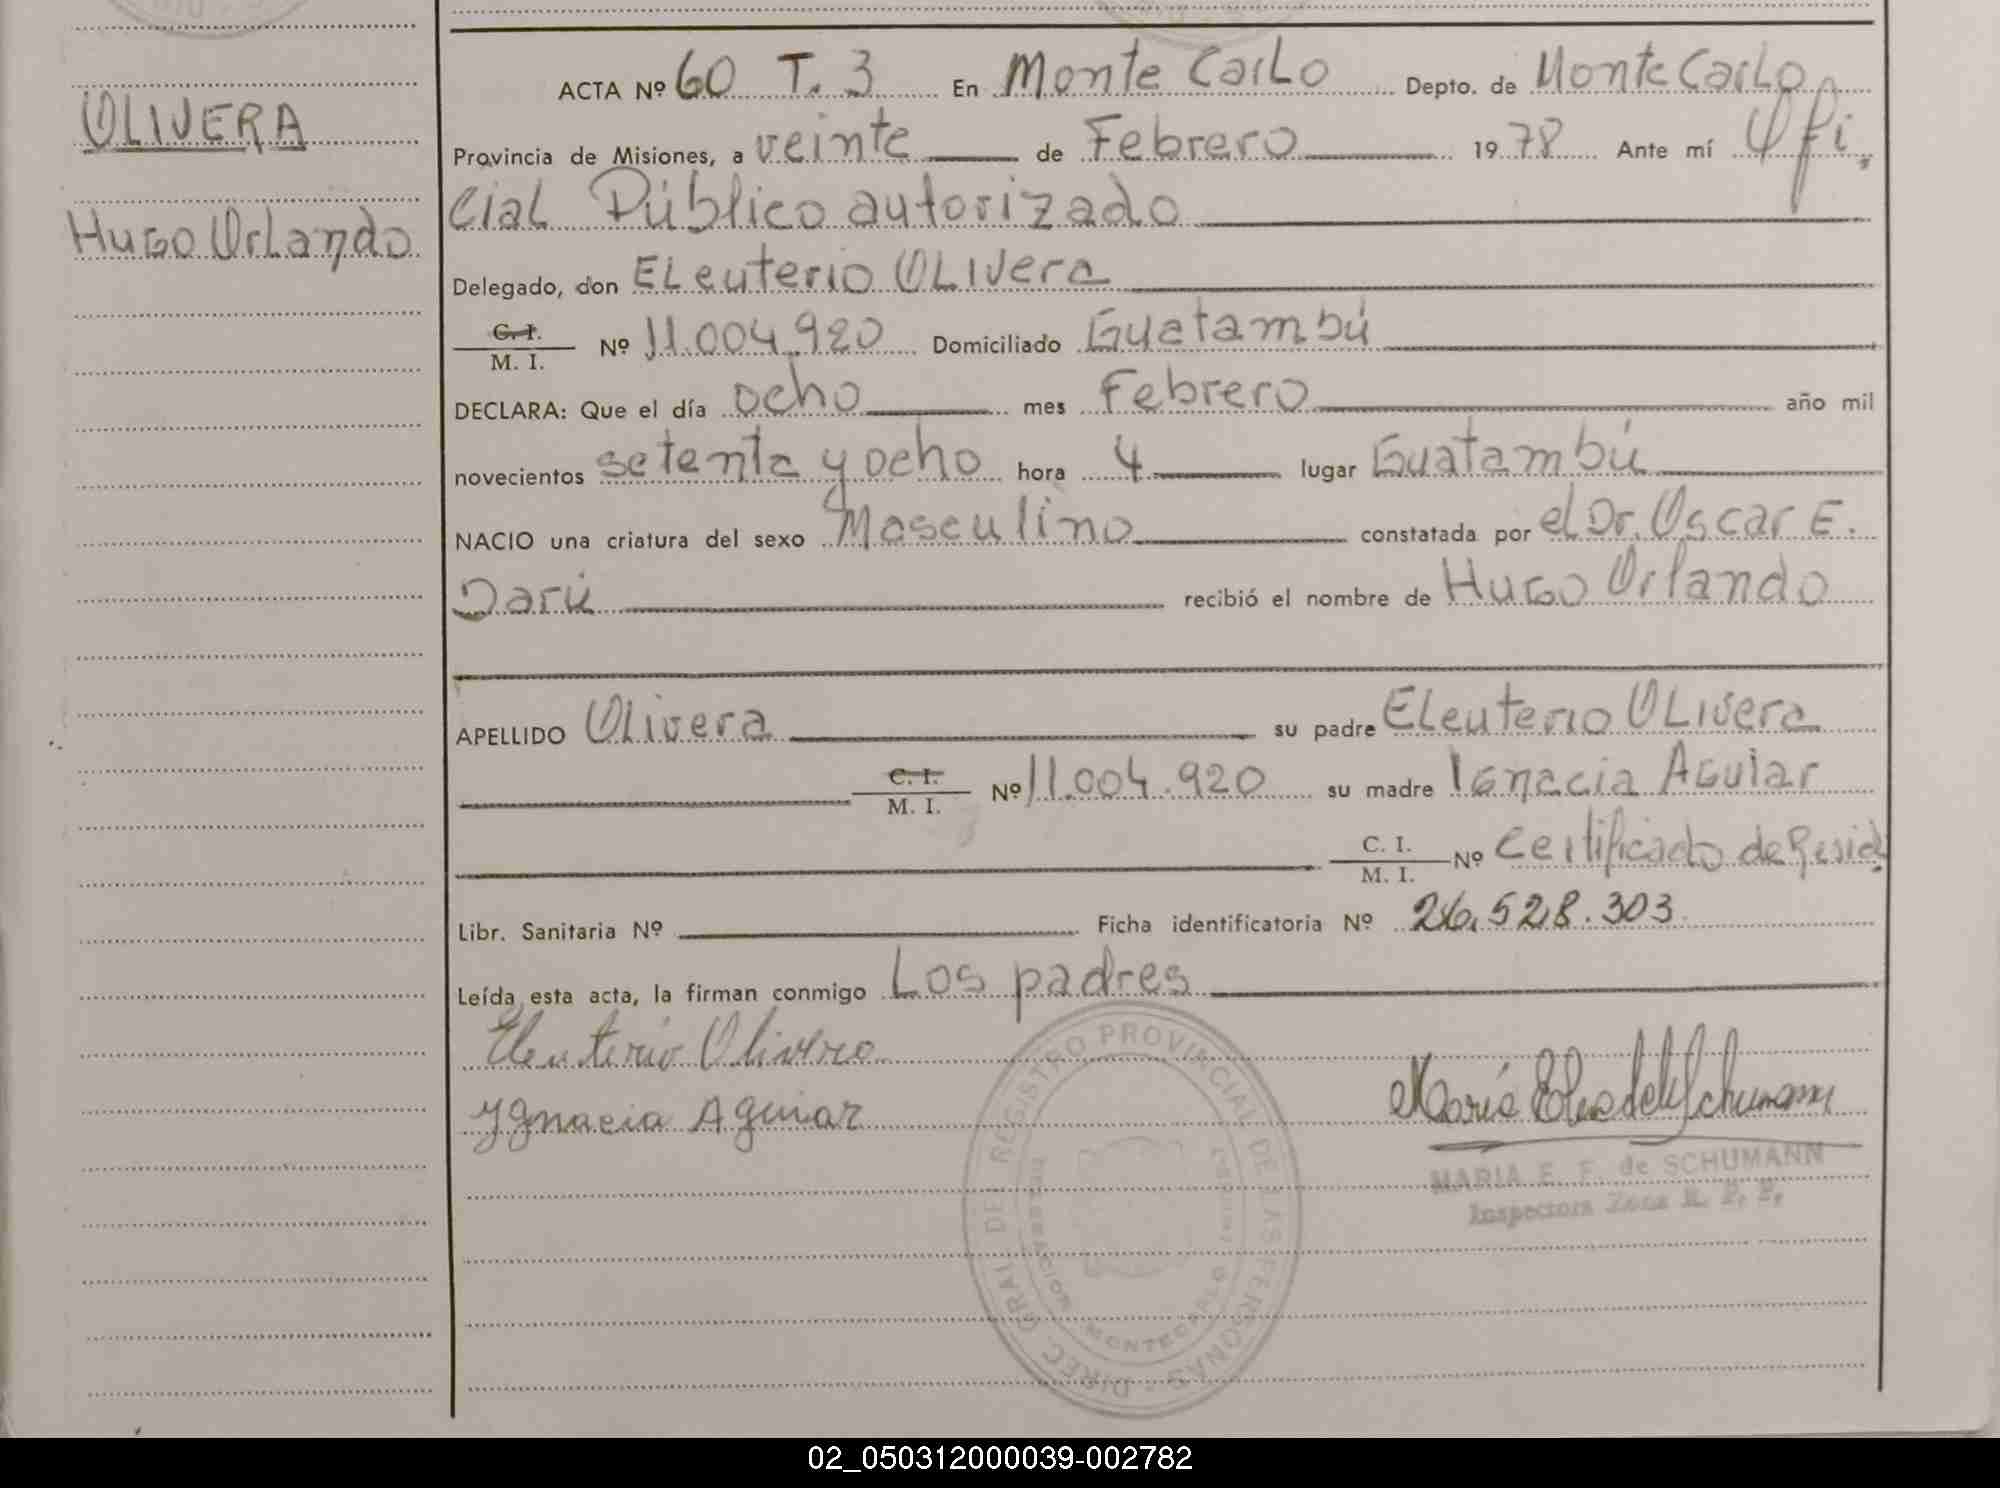 OLIVERA
Hugo Orlando
ACTA Nº 60 T. 3 En Monte Carlo Depto. de Monte Carlo
Provincia de Misiones, a veinte de Febrero 1978 Ante mí Ofi.
cial Público autorizado
Delegado, don Eleuterio Olivera
C. I.
M. I. Nº 11.004.920 Domiciliado Guatambú
DECLARA: Que el día ocho mes Febrero año mil
novecientos setenta y ocho hora 4 lugar Guatambú
NACIO una criatura del sexo Masculino constatada por el Dr. Oscar E.
Darú recibió el nombre de Hugo Orlando
APELLIDO Olivera su padre Eleuterio Olivera
C. I.
M. I. Nº 11.004.920 su madre Ignacia Aguiar
C. I.
M. I. Nº Certificado de Resid.
Libr. Sanitaria Nº Ficha identificatoria Nº 26.528.303
Leída esta acta, la firman conmigo Los padres
Eleuterio Olivera
Ygnacia Aguiar
DIREC. GRAL DEL REGISTRO PROVINCIAL DE LAS PERSONAS
MONTECARLO
MARIA E. F. de SCHUMANN
Inspectora Zona R. P. P.
02_050312000039-002782